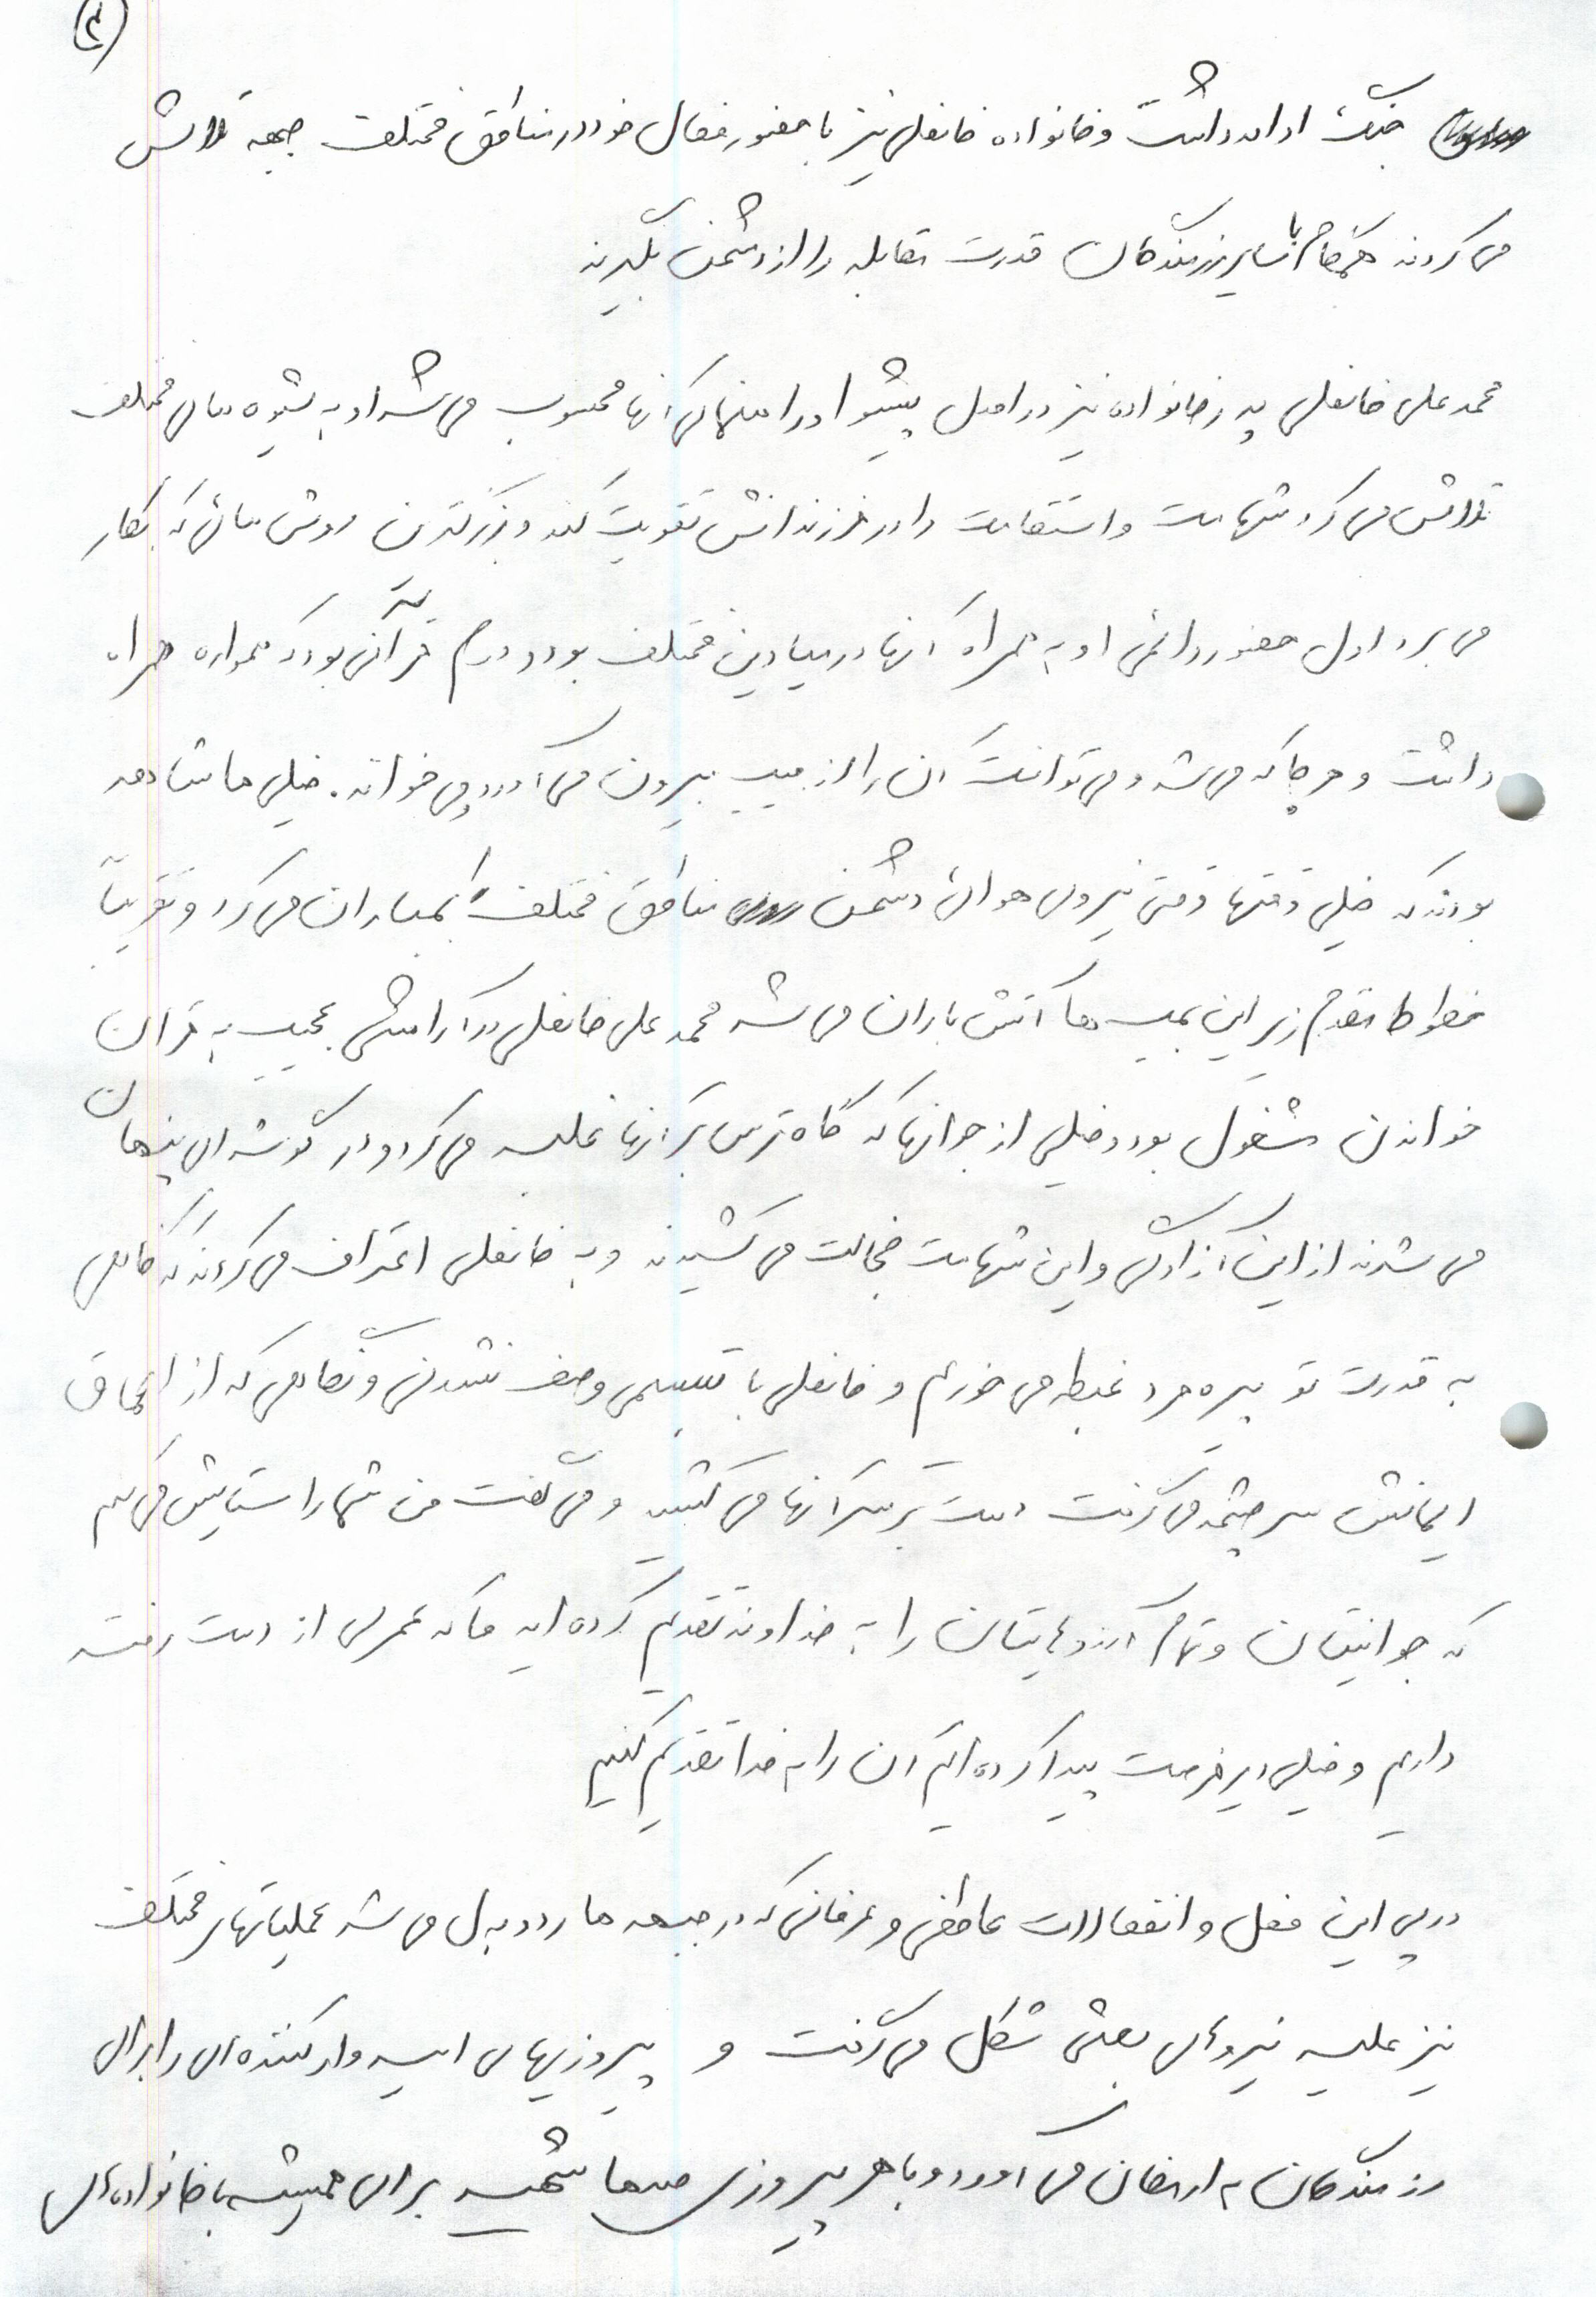 (۴)
جنگ ادامه داشت و خانواده خانعلی نیز با حضور فعال خود در مناطق مختلف جبهه تلاش
می کردند همگام با سایر رزمندگان قدرت مقابله را از دشمن بگیرند
محمد علی خانعلی پدر خانواده نیز در اصل پیشوا و راهنمای آنها محسوب می شد او به شیوه های مختلف
تلاش می کرد شهامت و استقامت را در فرزندانش تقویت کند و بزرگترین روش هائی که بکار
می برد اول حضور دائمی او به همراه آنها در میادین مختلف بود و دوم قرآنی بود که همواره همراه
داشت و هر جا که می شد و می توانست آن را از جیب بیرون می آورد و می خواند. خیلی ها شاهد
بودند که خیلی وقتها وقتی نیروی هوائی دشمن مناطق مختلف را بمباران می کرد و تقریباً
خطوط مقدم زیر این بمب ها آتش باران می شد محمد علی خانعلی در آرامشی عجیب به قرآن
خواندن مشغول بود و خیلی از جوانها که گاه ترس بر آنها غلبه می کرد و در گوشه ای پنهان
می شدند از این آزادگی و این شهامت خجالت می کشیدند و به خانعلی اعتراف می کردند که گاهی
به قدرت تو پیره مرد غبطه می خوریم و خانعلی با تبسمی وصف نشدنی و نگاهی که از اعماق
ایمانش سرچشمه می گرفت دست بر سر آنها می کشید و می گفت من شما را ستایش می کنم
که جوانیتان و تمام آرزوهایتان را به خداوند تقدیم کرده اید ما که عمری از دست رفته
داریم و خیلی دیر فرصت پیدا کرده ایم آن را به خدا تقدیم کنیم
در پی این فعل و انفعالات عاطفی و عرفانی که در جبهه ها رد و بدل می شد عملیاتهای مختلف
نیز علیه نیروهای بعثی شکل می گرفت و پیروزیهای امیدوار کننده ای را برای
رزمندگان به ارمغان می آورد و با هر پیروزی صدها شهید برای همیشه با خانواده های